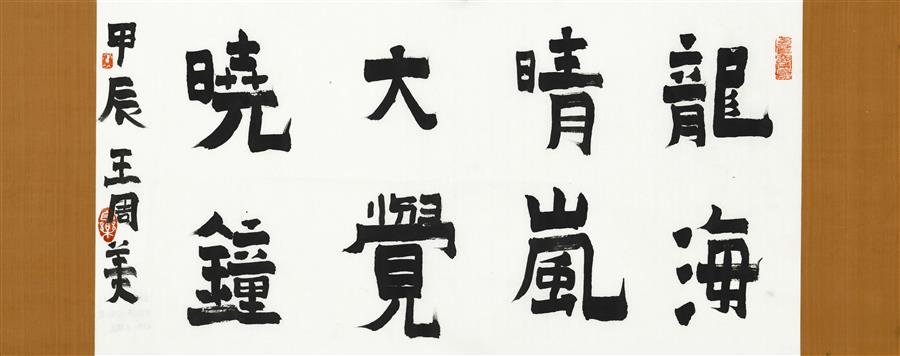 龍海
晴嵐
大覺
曉鐘
甲辰 王周美